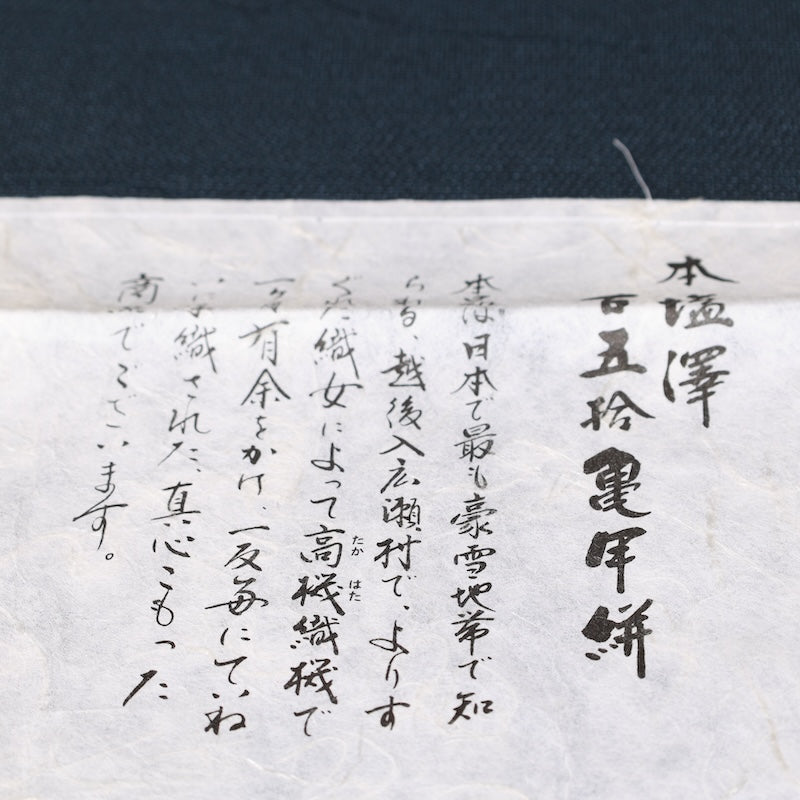 本塩澤
百五拾亀甲絣
本品は日本で最も豪雪地帯で知
られる、越後入広瀬村で、よりす
ぐった織女によって高機織機で
たか はた
一ヶ月有余をかけ、一反毎にていね
いな織された、真心こもった
商品でございます。